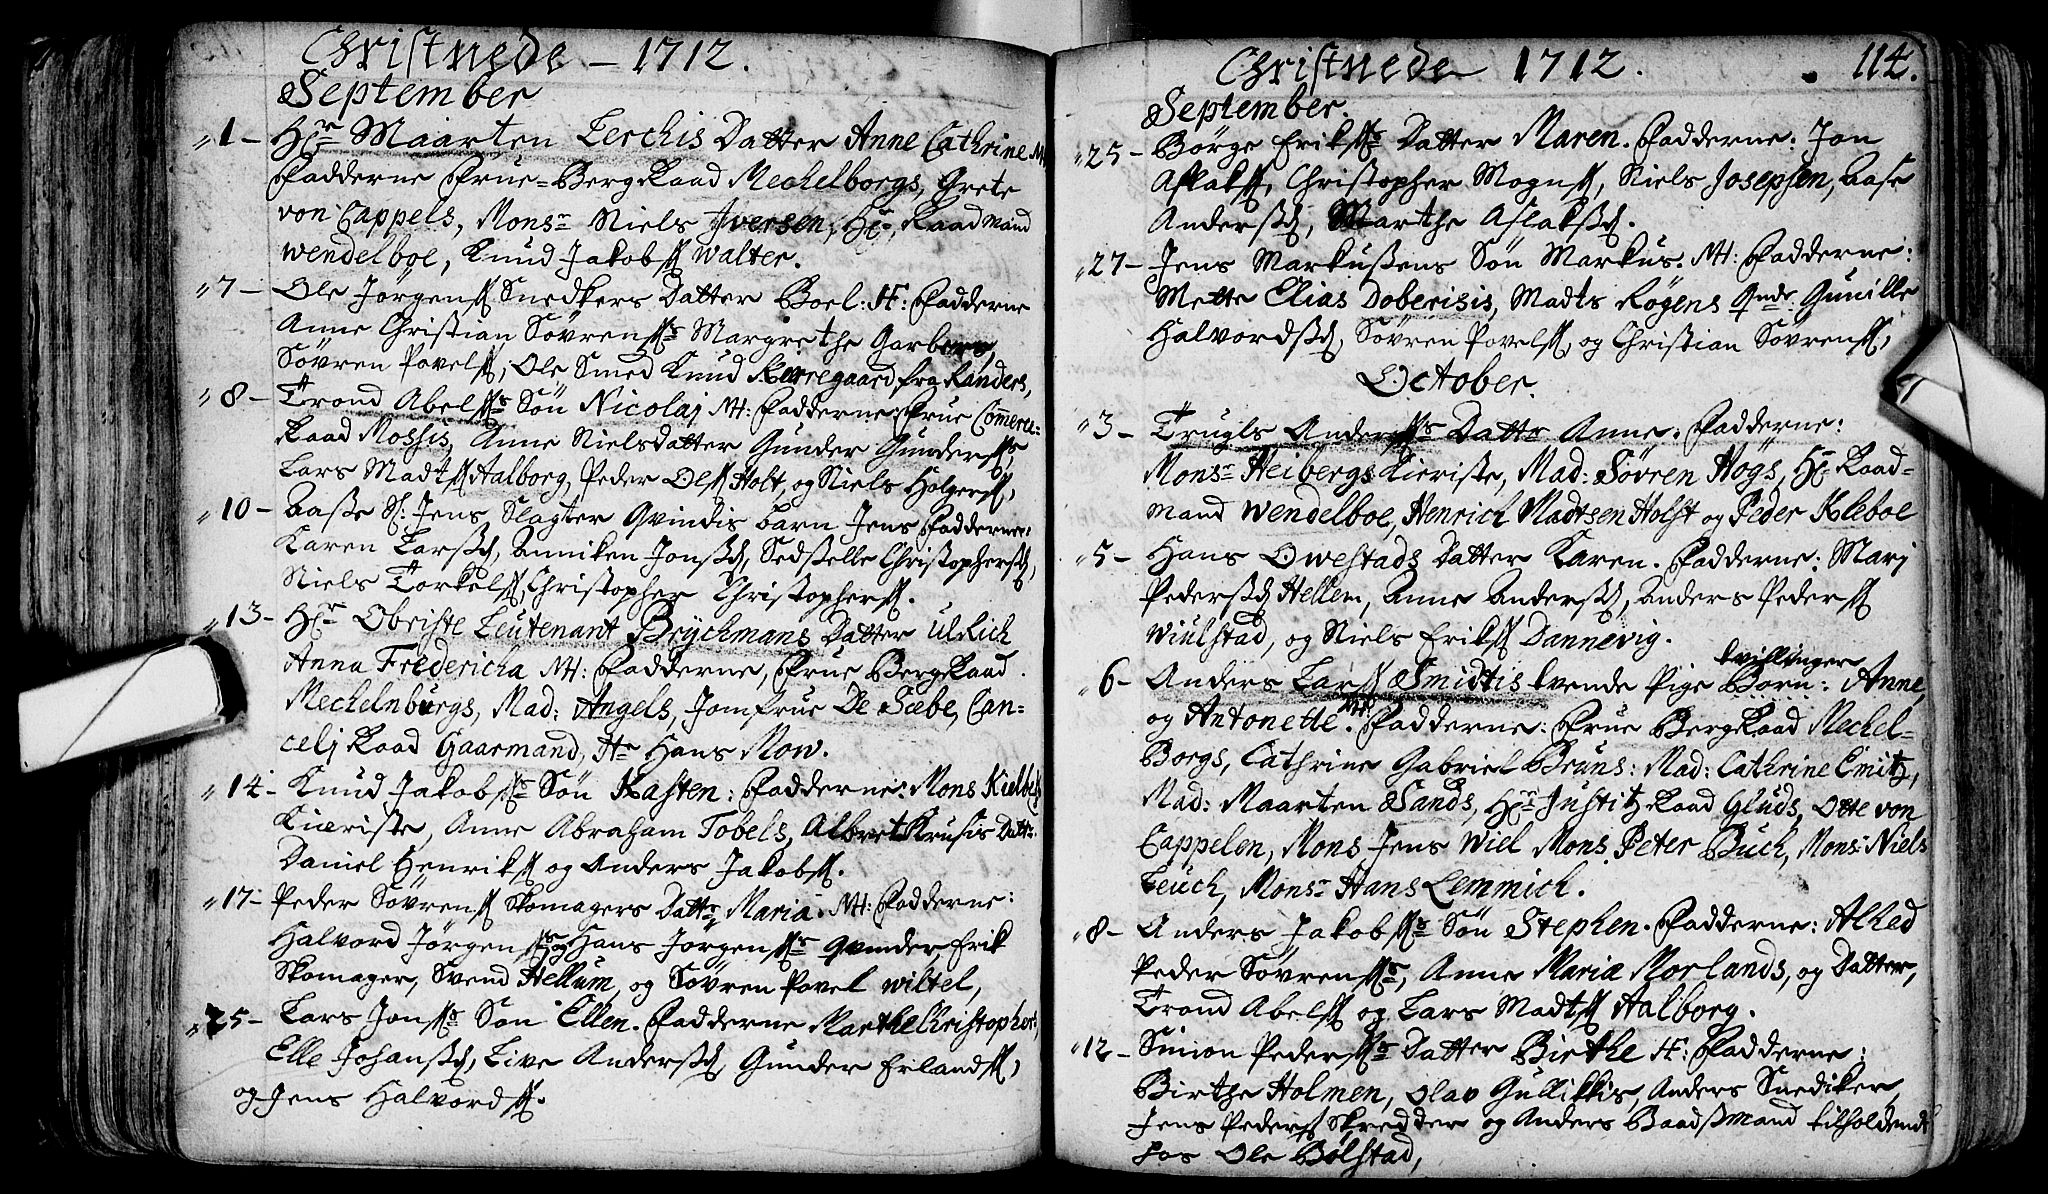 Christnede - 1712.
September
1 - Hr Maarten Lerchis Datter Anne Cathrine
Fadderne Frue Berg Raad Mechelborgs, Grete
von Cappels, Monsr Niels Iversen, Hr Raadmand
Wendelboe, Knud Jakobss Walter.
7 - Ole Jørgenss Snedkers Datter Boel: H: Fadderne
Anne Christian Sövrenss Margrethe Garbers,
Sövren Povelss, Ole Smed Knud Kierregaard fra Randers,
8 - Trond Abelss Sön Nicolaj NH: Fadderne: Frue Commerce-
Raad Mossis, Anne Nielsdatter Gunder Gunderss,
Lars Madtss Aalborg, Peder Olss Holt, og Niels Holgerss,
10 - Sl: Jens Slagter Qvindis barn Jens Fadderne:
Karen Larssd, Anniken Jonssd, Sedsselle Christopherssd,
Niels Torkelss, Christopher Christopherss.
13 - Hr Obriste Leutenant Brÿchmans Datter Ulrich
Anna Fredericha NH: Fadderne, Frue Berg Raad
Mechelnburgs, Mad: Angels, Jomfrue De Seebe, Can-
celj Raad Gaarmand, Hr Hans Mow.
14 - Knud Jakobss Sön Kasten: Fadderne: Mons Kielbergs
Kiæriste, Anne Abraham Tobels, Albret Krusis Dattr.
Daniel Henrikss og Anders Jakobss.
17 - Peder Sövrenss Skomagers Dattr Maria. NH: Fadderne:
Halvord Jörgenss og Hans Jörgenss Qvinder, Erik
Skomager, Svend Hellum, og Sövren Povel Wiltel,
25 - Lars Jonss Sön Ellen. Fadderne Marthe Christophers
Elle Johanssd, Live Anderssd, Gunder Erlandss,
og Jens Halvordss.
Christnede 1712. 114.
September.
25 - Börge Erikss Datter Maren. Fadderne: Jon
Aslakss, Christopher Mognss, Niels Josepsen, Aase
Anderssd, Marthe Aslakssd.
27 - Jens Markussens Sön Markus. NH: Fadderne:
Mette Elias Doberisis, Madts Rögens Qnde Gunille
Halvordssd, Sövren Povelss, og Christian Sövrenss,
October.
3 - Trugls Anderss Dattr Anne. Fadderne:
Monsr Heibergs Kieriste, Mad: Sövren Högs, Hr Raad-
mand Wendelboe, Henrich Madtsen Holst og Peder Kleboe
5 - Hans Owestads Datter Karen. Fadderne: Marj
Pederssd Hellem, Anne Anderssd, Anders Pederss
Wiulstad, og Niels Erikss Dannevig.
tvillinger
6 - Anders Larss Smidtis tvende Pige Börn: Anne,
og Antonette. NH: Fadderne: Frue Berg Raad Mechel-
Borgs, Cathrine Gabriel Bruns: Mad: Cathrine Emitz,
Mad: Maarten Sands, Hr Justitz Raad Gluds, Otte von
Cappelen, Mons Jens Wiel Mons Peter Buch, Mons: Niels
Leuch, Monsr Hans Lemmich.
8 - Anders Jakobss Sön Stephen. Fadderne: Alhed
Peder Sövrenss, Anne Maria Morlands, og Datter,
Trond Abelss og Lars Madtss Aalborg.
12 - Simon Pederss Datter Birthe H: Fadderne:
Birthe Holmen, Olav Gullikkis, Anders Snediker,
Jens Pederss Skredder og Anders Baadssmand tilholdende
hos Ole Bölstad,